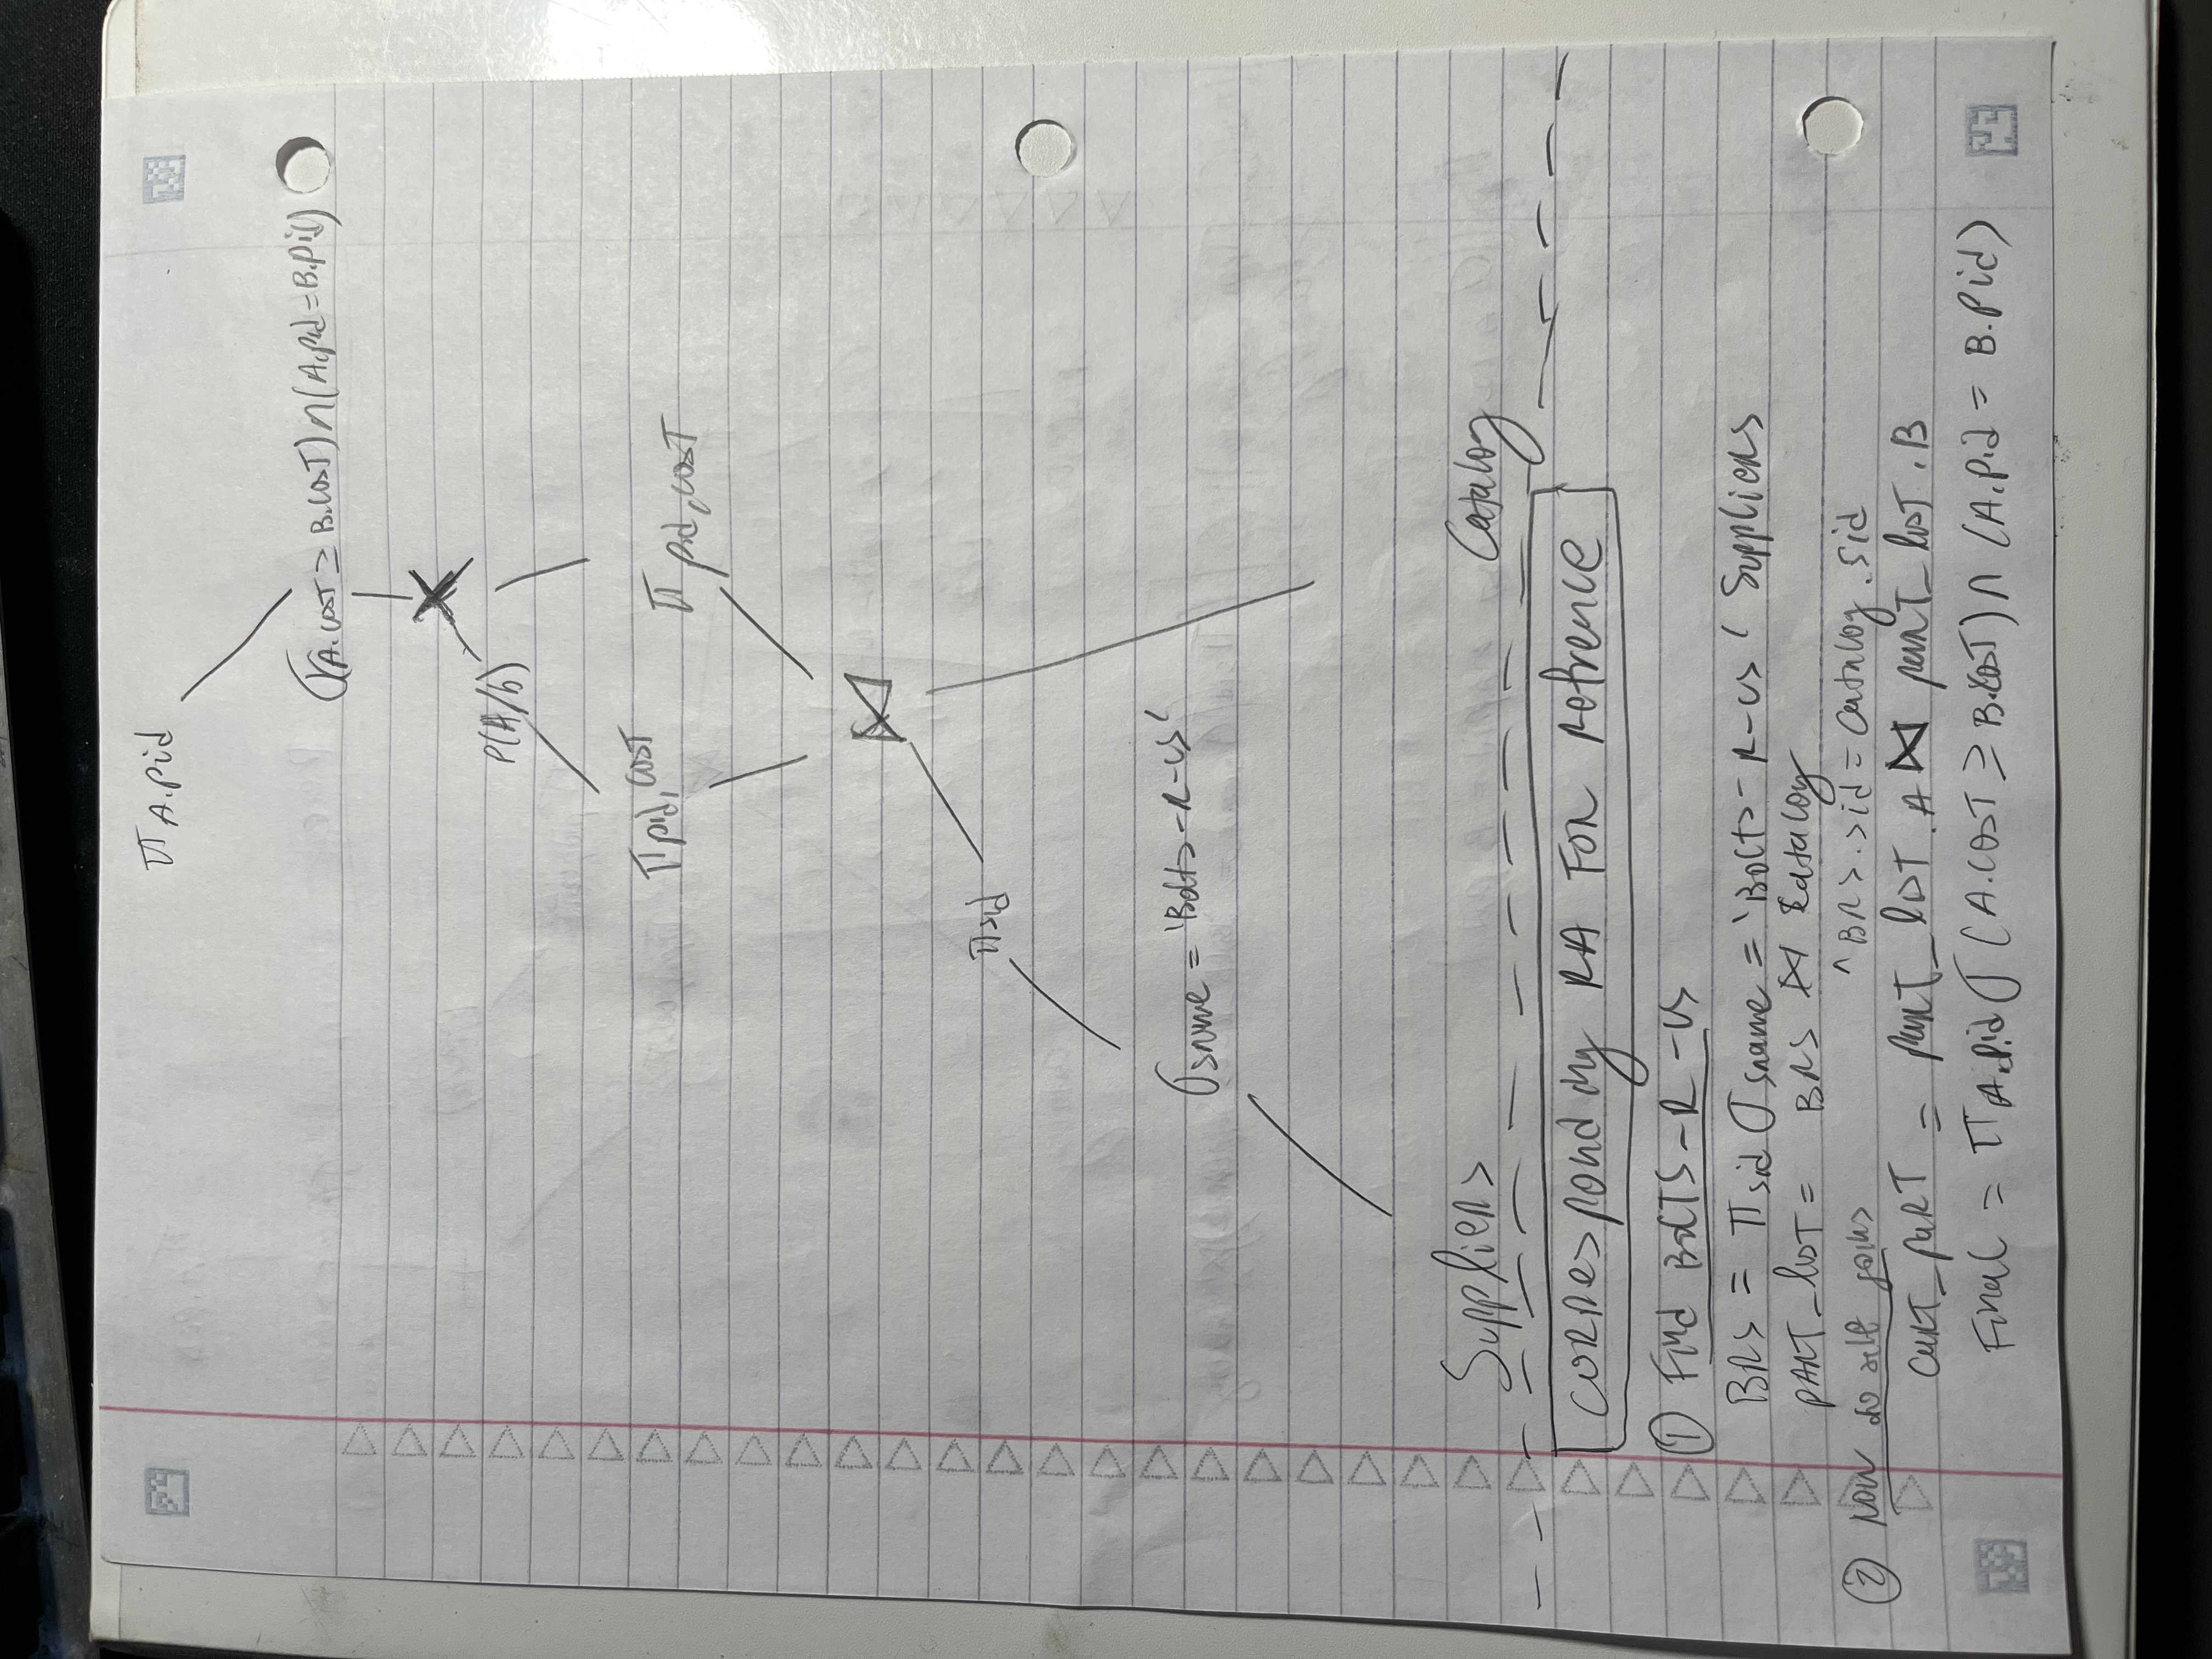 π A.pid
σ(A.cosT ≥ B.cosT) ∩ (A.pid = B.pid)
X
ρ(A/b)
π pid, cosT
π pid, cosT
⋈
π sid
σ sname = 'Bolts-R-us'
Suppliers
Catalog
corresponding RA FOR Refrence
① Find BolTS-R-us
BRs = π sid σ sname = 'Bolts-R-us' Suppliers
PART_lisT = BRs ⋈ Catalog
^BRs.sid = Catalog.sid
② Now do self joins
carT_parT = parT_lisT.A ⋈ parT_lisT.B
Final = π A.pid σ (A.cosT ≥ B.cosT) ∩ (A.pid = B.pid)